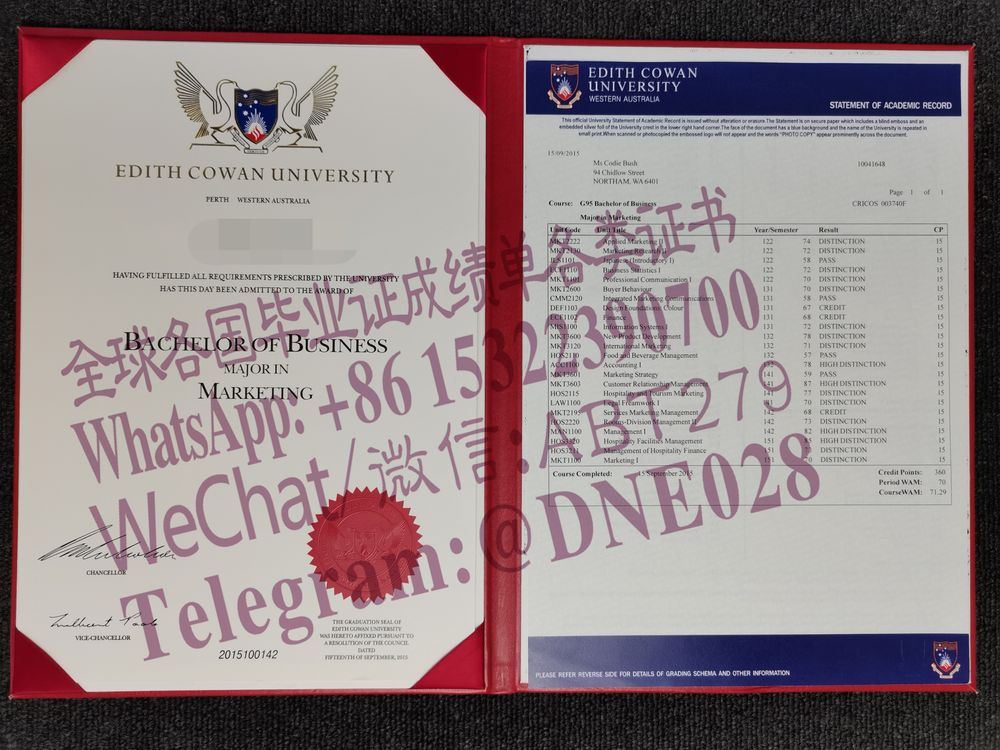 EDITH COWAN UNIVERSITY
PERTH WESTERN AUSTRALIA
HAVING FULFILLED ALL REQUIREMENTS PRESCRIBED BY THE UNIVERSITY
HAS THIS DAY BEEN ADMITTED TO THE AWARD OF
BACHELOR OF BUSINESS
MAJOR IN
MARKETING
CHANCELLOR
VICE-CHANCELLOR
2015100142
THE GRADUATION SEAL OF
EDITH COWAN UNIVERSITY
WAS HERETO AFFIXED PURSUANT TO
A RESOLUTION OF THE COUNCIL
DATED
FIFTEENTH OF SEPTEMBER, 2015
EDITH COWAN
UNIVERSITY
WESTERN AUSTRALIA
STATEMENT OF ACADEMIC RECORD
This official University Statement of Academic Record is issued without alteration or erasure.The Statement is on secure paper which includes a blind emboss and an
embedded silver foil of the University crest in the lower right hand corner.The face of the document has a blue background and the name of the University is repeated in
small print.When scanned or photocopied the embossed logo will not appear and the words "PHOTO COPY" appear prominently across the document.
15/09/2015
Ms Codie Bush
94 Chidlow Street
NORTHAM, WA 6401
10041648
Page 1 of 1
Course: G95 Bachelor of Business
CRICOS 003740F
Major in Marketing
Unit Code Unit Title Year/Semester Result CP
MKT2222 Applied Marketing II 122 74 DISTINCTION 15
MKT2130 Marketing Research II 122 72 DISTINCTION 15
JES1101 Japanese (Introductory I) 122 58 PASS 15
ECF1110 Business Statistics I 122 72 DISTINCTION 15
Professional Communication I 122 70 DISTINCTION 15
MKT2600 Buyer Behaviour 131 70 DISTINCTION 15
CMM2120 Integrated Marketing Communications 131 58 PASS 15
DEF1103 Design Foundations: Colour 131 67 CREDIT 15
ECF1102 Finance 131 68 CREDIT 15
MIS1100 Information Systems I 131 72 DISTINCTION 15
MKT3600 New Product Development 132 78 DISTINCTION 15
MKT3120 International Marketing 132 71 DISTINCTION 15
HOS2110 Food and Beverage Management 132 57 PASS 15
ACC1100 Accounting I 132 78 HIGH DISTINCTION 15
MKT3601 Marketing Strategy 141 59 PASS 15
MKT3603 Customer Relationship Management 141 87 HIGH DISTINCTION 15
HOS2115 Hospitality and Tourism Marketing 141 77 DISTINCTION 15
LAW1100 Legal Freamwork I 141 70 DISTINCTION 15
MKT2195 Services Marketing Management 142 68 CREDIT 15
HOS2220 Rooms-Division Management II 142 73 DISTINCTION 15
MAN1100 Management I 142 82 HIGH DISTINCTION 15
HOS3320 Hospitality Facilities Management 151 85 HIGH DISTINCTION 15
HOS3231 Management of Hospitality Finance 151 DISTINCTION 15
MKT1100 Marketing I 151 70 DISTINCTION 15
Course Completed: 15 September 2015
Credit Points: 360
Period WAM: 70
CourseWAM: 71.29
PLEASE REFER REVERSE SIDE FOR DETAILS OF GRADING SCHEMA AND OTHER INFORMATION
全球各国毕业证成绩单各类证书
WhatsApp: +86 15323390700
WeChat/微信: ABT 279
Telegram: @DNE028